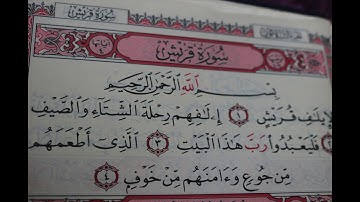 سُورَةُ قُرَيْشٍ
سُورَةُ قُرَيْشٍ
بِسْمِ ٱللَّهِ ٱلرَّحْمَٰنِ ٱلرَّحِيمِ
لِإِيلَٰفِ قُرَيْشٍ ١ إِۦلَٰفِهِمْ رِحْلَةَ ٱلشِّتَآءِ وَٱلصَّيْفِ
٢ فَلْيَعْبُدُوا۟ رَبَّ هَٰذَا ٱلْبَيْتِ ٣ ٱلَّذِىٓ أَطْعَمَهُم
مِّن جُوعٍ وَءَامَنَهُم مِّنْ خَوْفٍۭ ٤